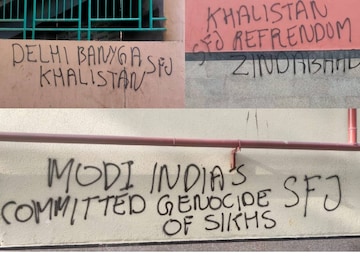 DELHI BANYGA
KHALISTAN SFJ
KHALISTAN
SFJ REFRENDOM
ZINDABAAD
MODI INDIA'S
COMMITTED GENOCIDE SFJ
OF SIKHS